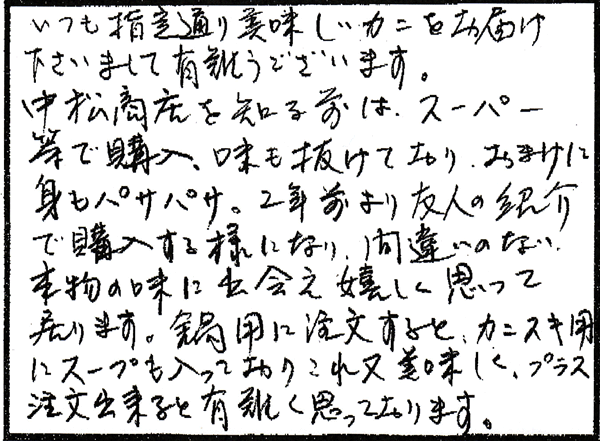 いつも指定通り美味しいカニをお届け
下さいまして有難うございます。
中松商店を知る前は、スーパー
等で購入、味も抜けており、おまけに
身もパサパサ。2年前より友人の紹介
で購入する様になり、間違いのない、
本物の味に出会え嬉しく思って
居ります。鍋用に注文すると、カニスキ用
にスープも入っておりこれ又美味しく、プラス
注文出来ると有難く思っております。